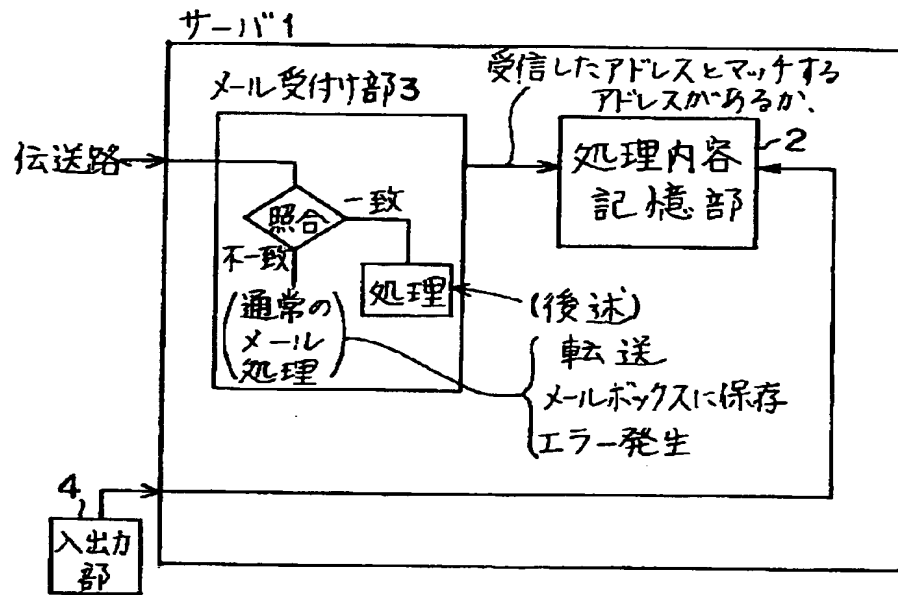 サーバ1
メール受付け部3
受信したアドレスとマッチする
アドレスがあるか、
伝送路
照合
一致
不一致
処理
(通常の
メール
処理)
処理内容
記憶部
2
(後述)
転送
メールボックスに保存
エラー発生
4
入出力
部